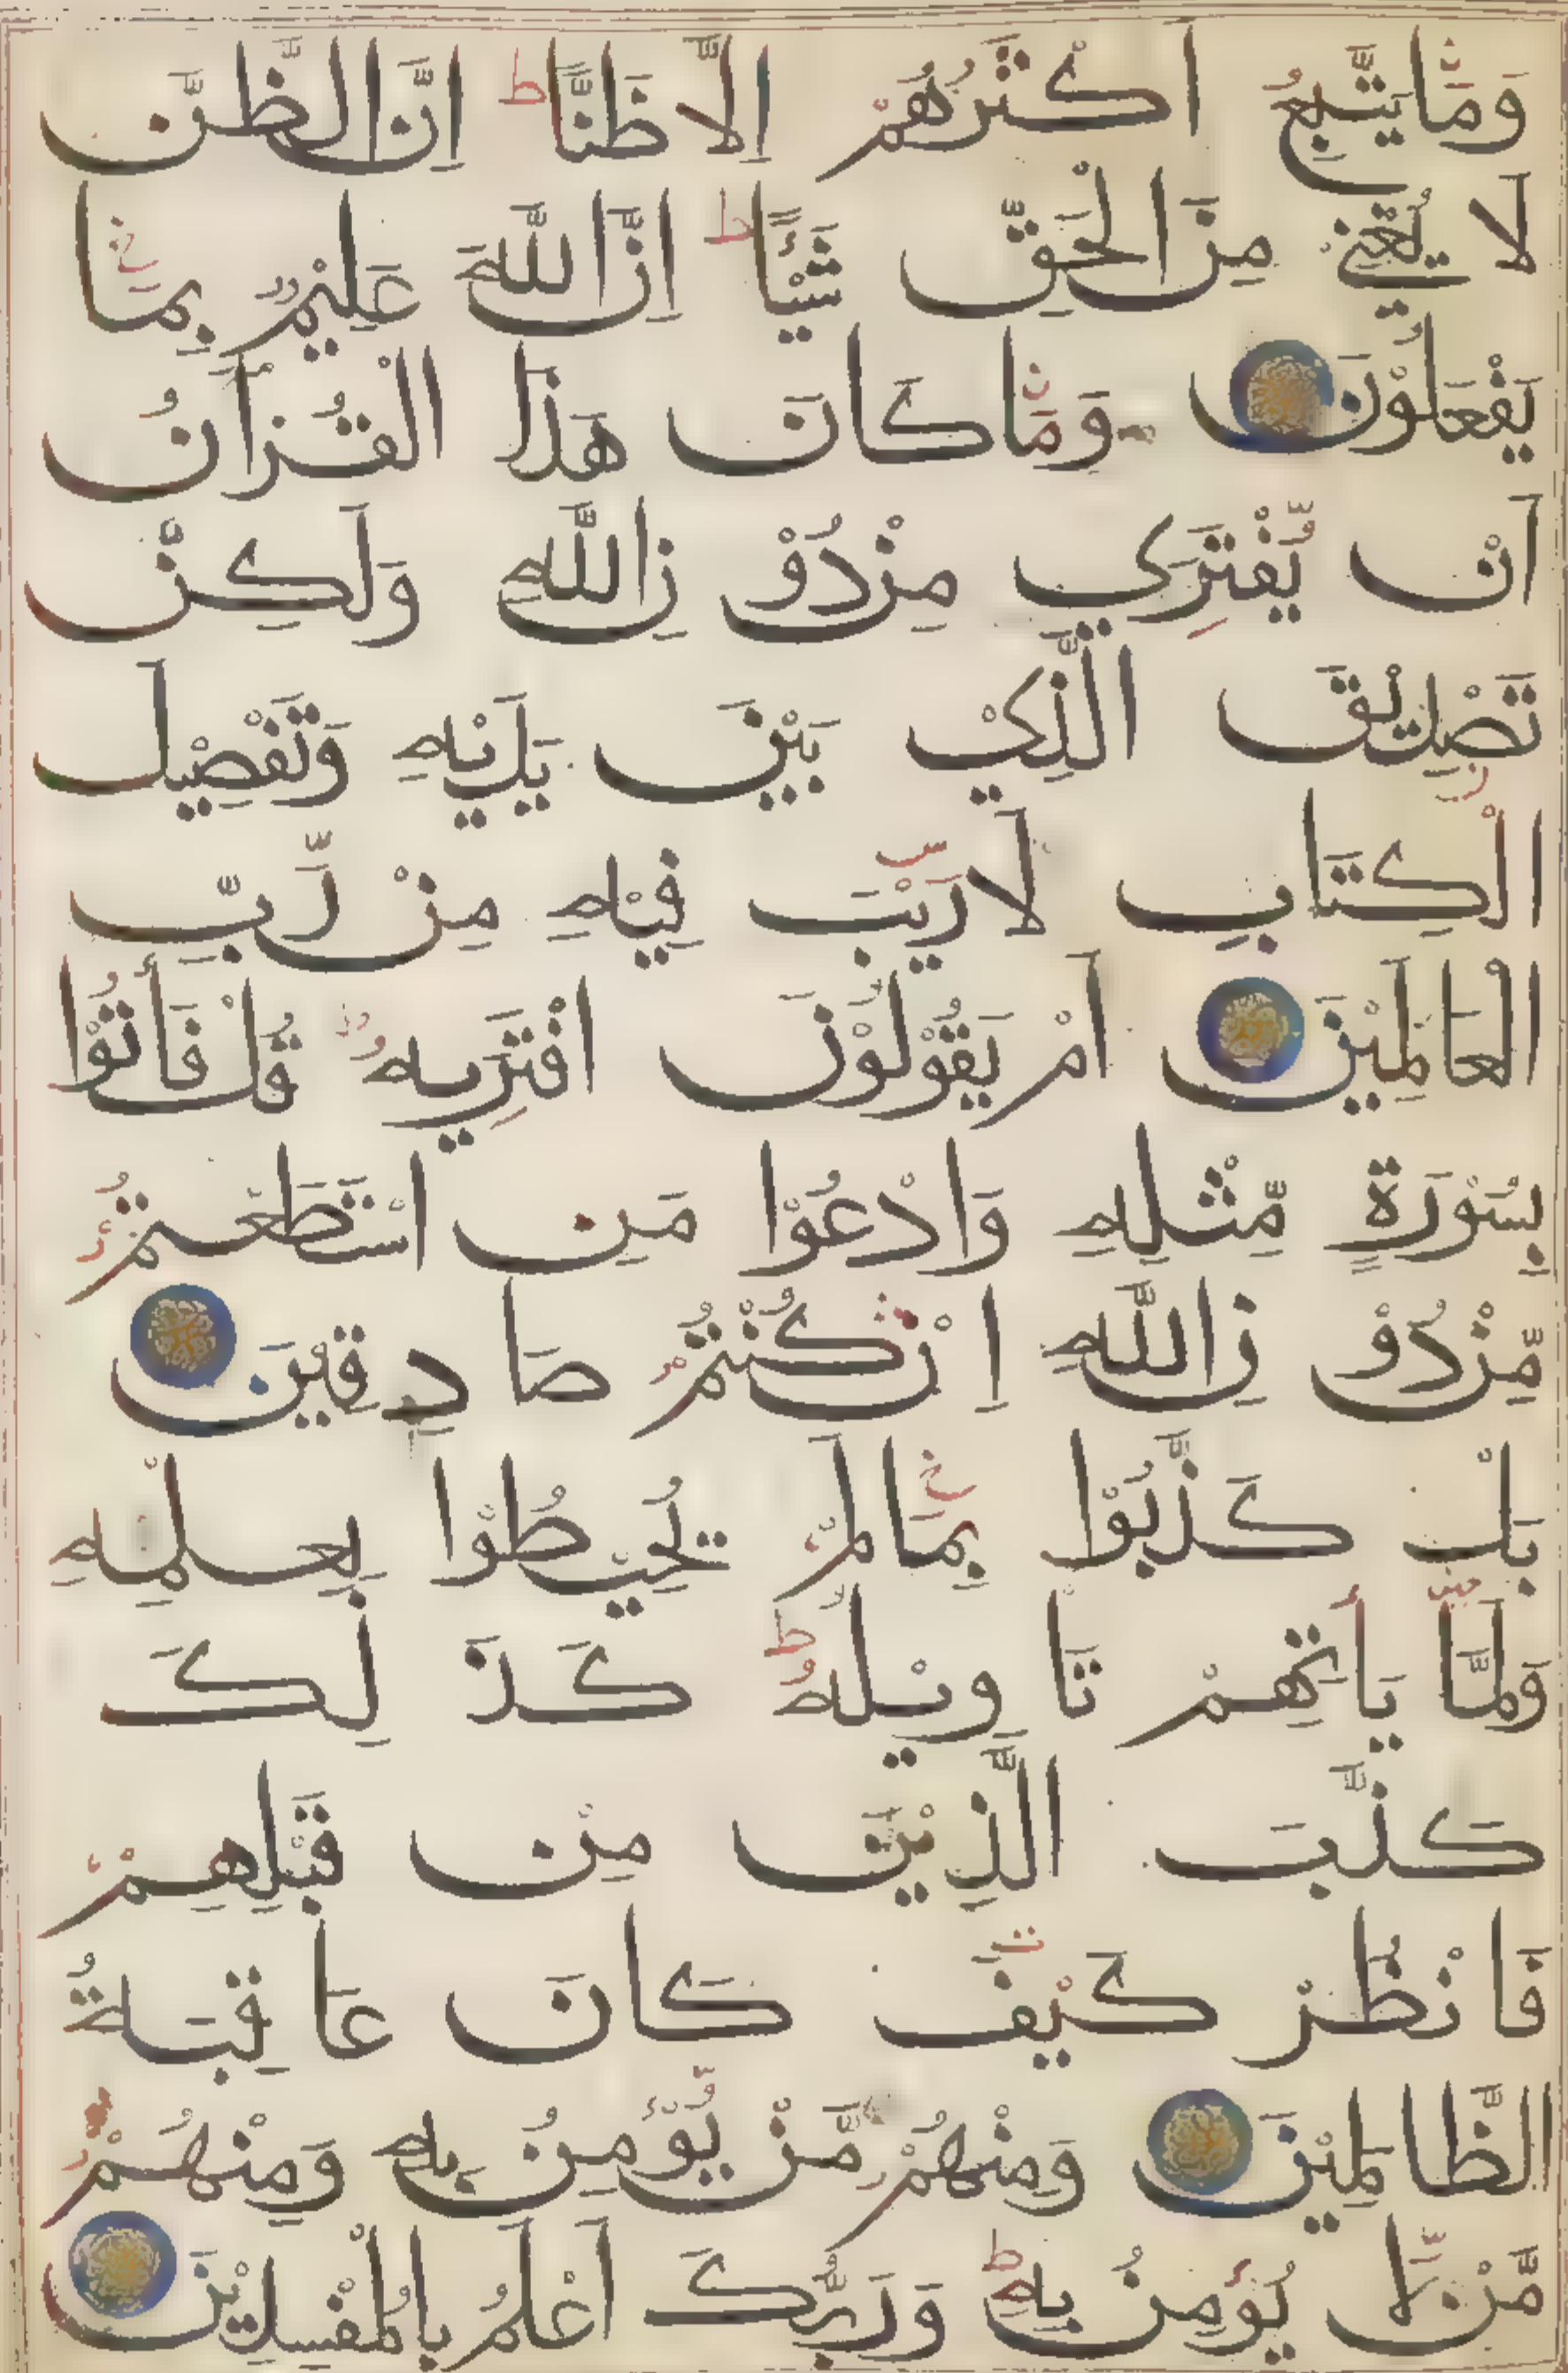 وَمَا يَتَّبِعُ اَكْثَرُهُمْ اِلَّا ظَنًّا ط اِنَّ الظَّنَّ
لَا يُغْنِيْ مِنَ الْحَقِّ شَيْئًا ط اِنَّ اللَّهَ عَلِيْمٌ بِمَا
يَفْعَلُوْنَ وَمَا كَانَ هَذَا الْقُرْاٰنُ
اَنْ يُّفْتَرٰي مِنْ دُوْنِ اللَّهِ وَلَكِنْ
تَصْدِيْقَ الَّذِيْ بَيْنَ يَدَيْهِ وَتَفْصِيْلَ
الْكِتَابِ لَا رَيْبَ فِيْهِ مِنْ رَّبِّ
الْعَالَمِيْنَ اَمْ يَقُوْلُوْنَ افْتَرٰيهُ قُلْ فَأْتُوْا
بِسُوْرَةٍ مِّثْلِهِ وَادْعُوْا مَنِ اسْتَطَعْتُمْ
مِّنْ دُوْنِ اللَّهِ اِنْ كُنْتُمْ صَادِقِيْنَ
بَلْ كَذَّبُوْا بِمَا لَمْ يُحِيْطُوْا بِعِلْمِهِ
وَلَمَّا يَأْتِهِمْ تَاْوِيْلُهُ ط كَذَلِكَ
كَذَّبَ الَّذِيْنَ مِنْ قَبْلِهِمْ
فَانْظُرْ كَيْفَ كَانَ عَاقِبَةُ
الظَّالِمِيْنَ وَمِنْهُمْ مَّنْ يُّؤْمِنُ بِهِ وَمِنْهُمْ
مَّنْ لَّا يُؤْمِنُ بِهِ ط وَرَبُّكَ اَعْلَمُ بِالْمُفْسِدِيْنَ